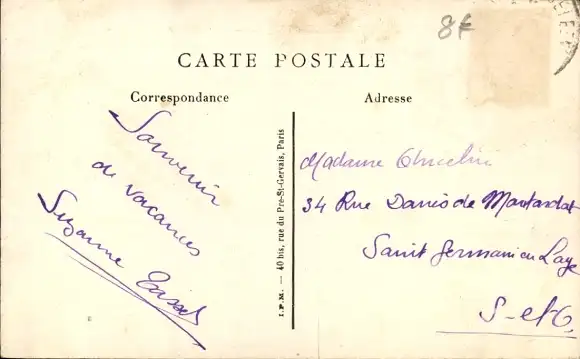 8f
CARTE POSTALE
Correspondance
Adresse
Souvenir
de vacances
Suzanne
I.P.M. — 40 bis, rue du Pré-St-Gervais, Paris
Madame
34 Rue Danès de Montardat
Saint Germain en Laye
S-et-O